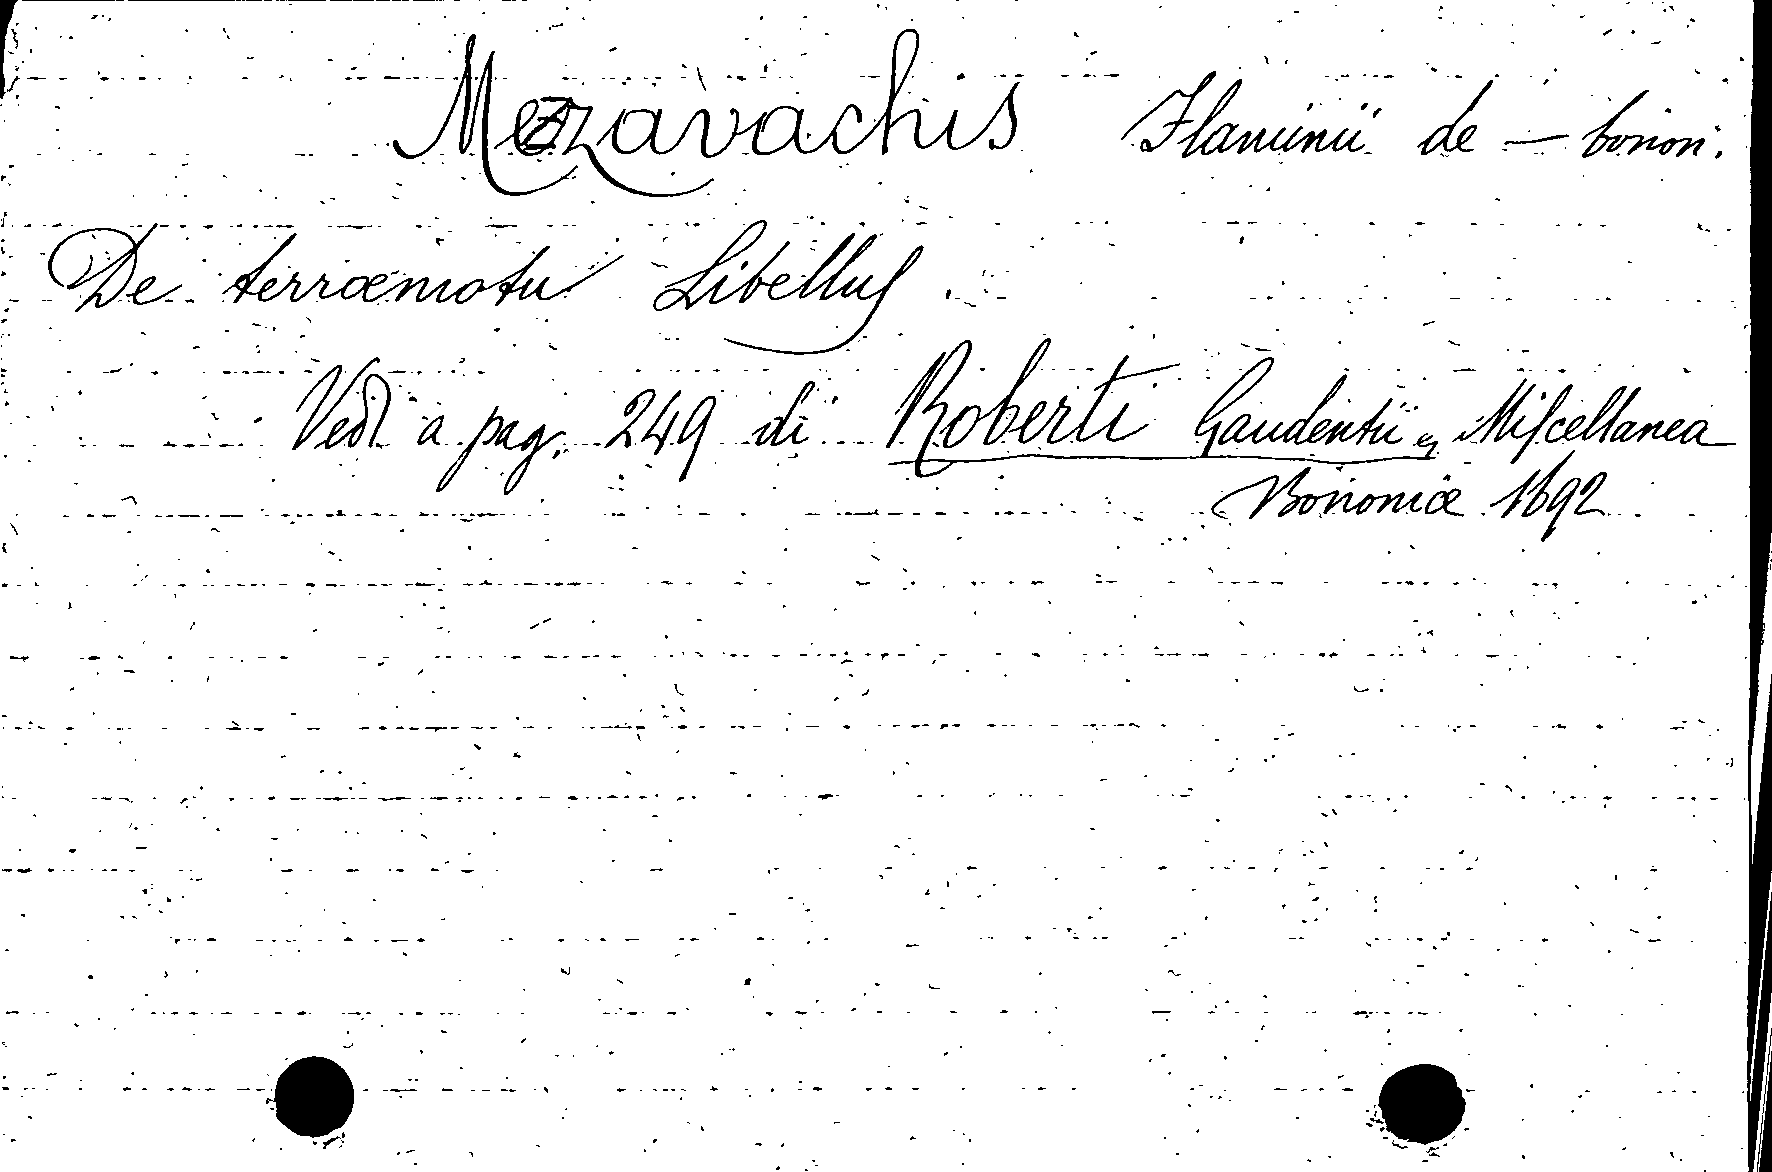 Mezzavachis Flaminii de — bonon.
De terræmotu Libellus.
Vedi a pag. 249 di Roberti Gaudentii „ Miscellanea
Bononiæ 1692